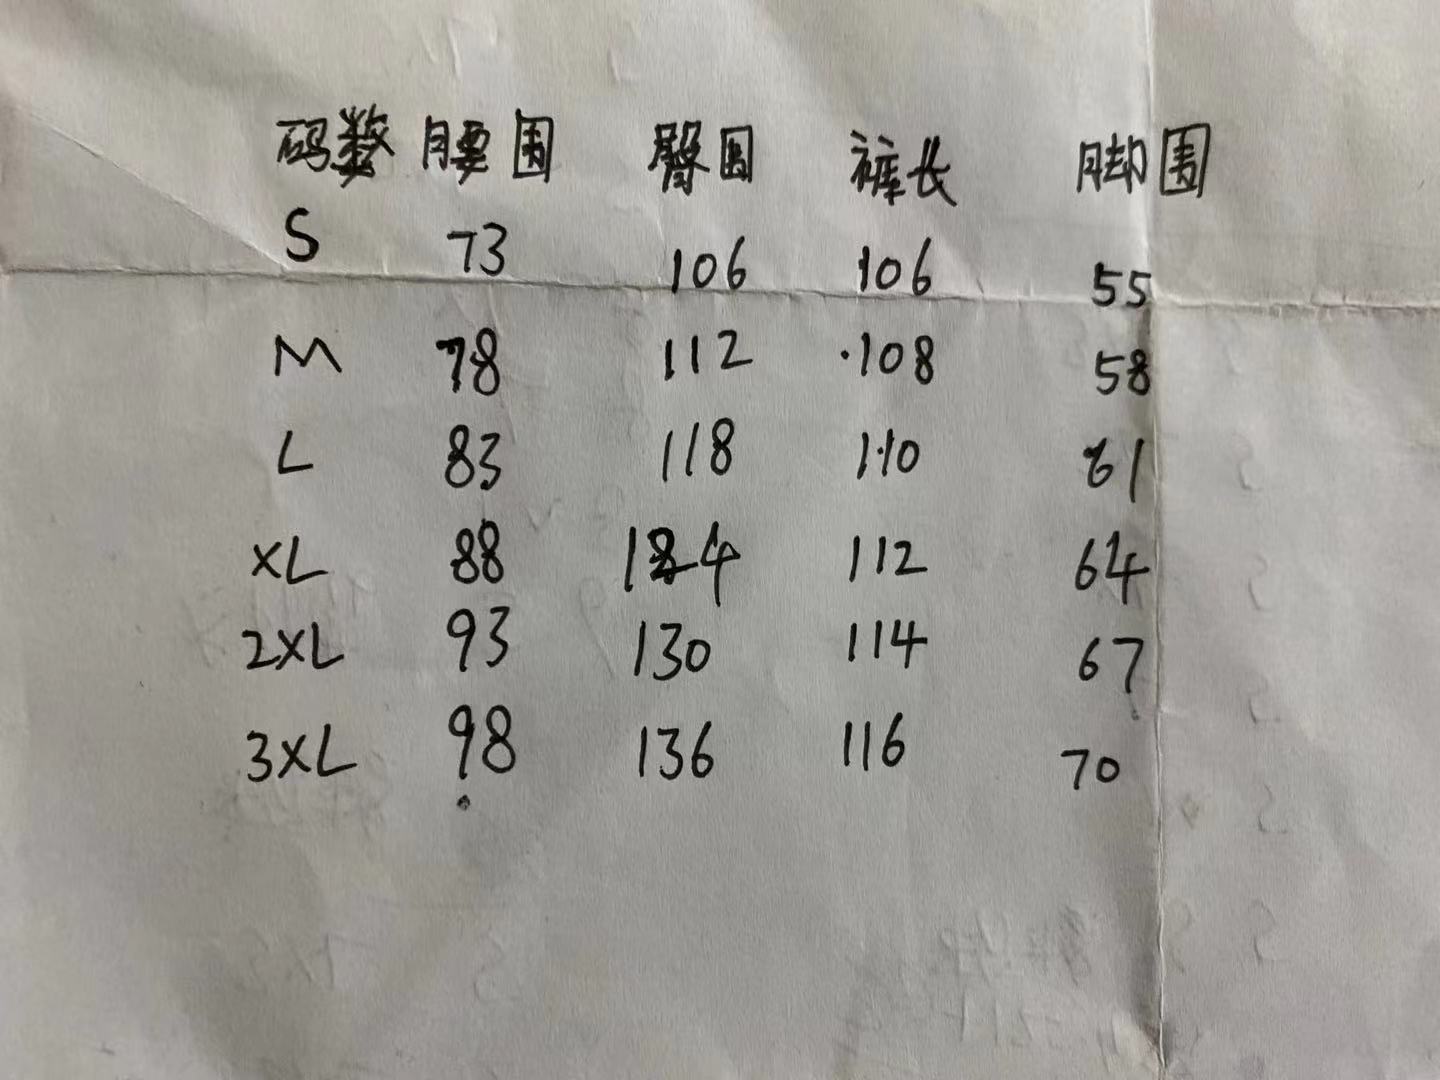 码数 腰围 臀围 裤长 脚围
S 73 106 106 55
M 78 112 108 58
L 83 118 110 61
XL 88 124 112 64
2XL 93 130 114 67
3XL 98 136 116 70